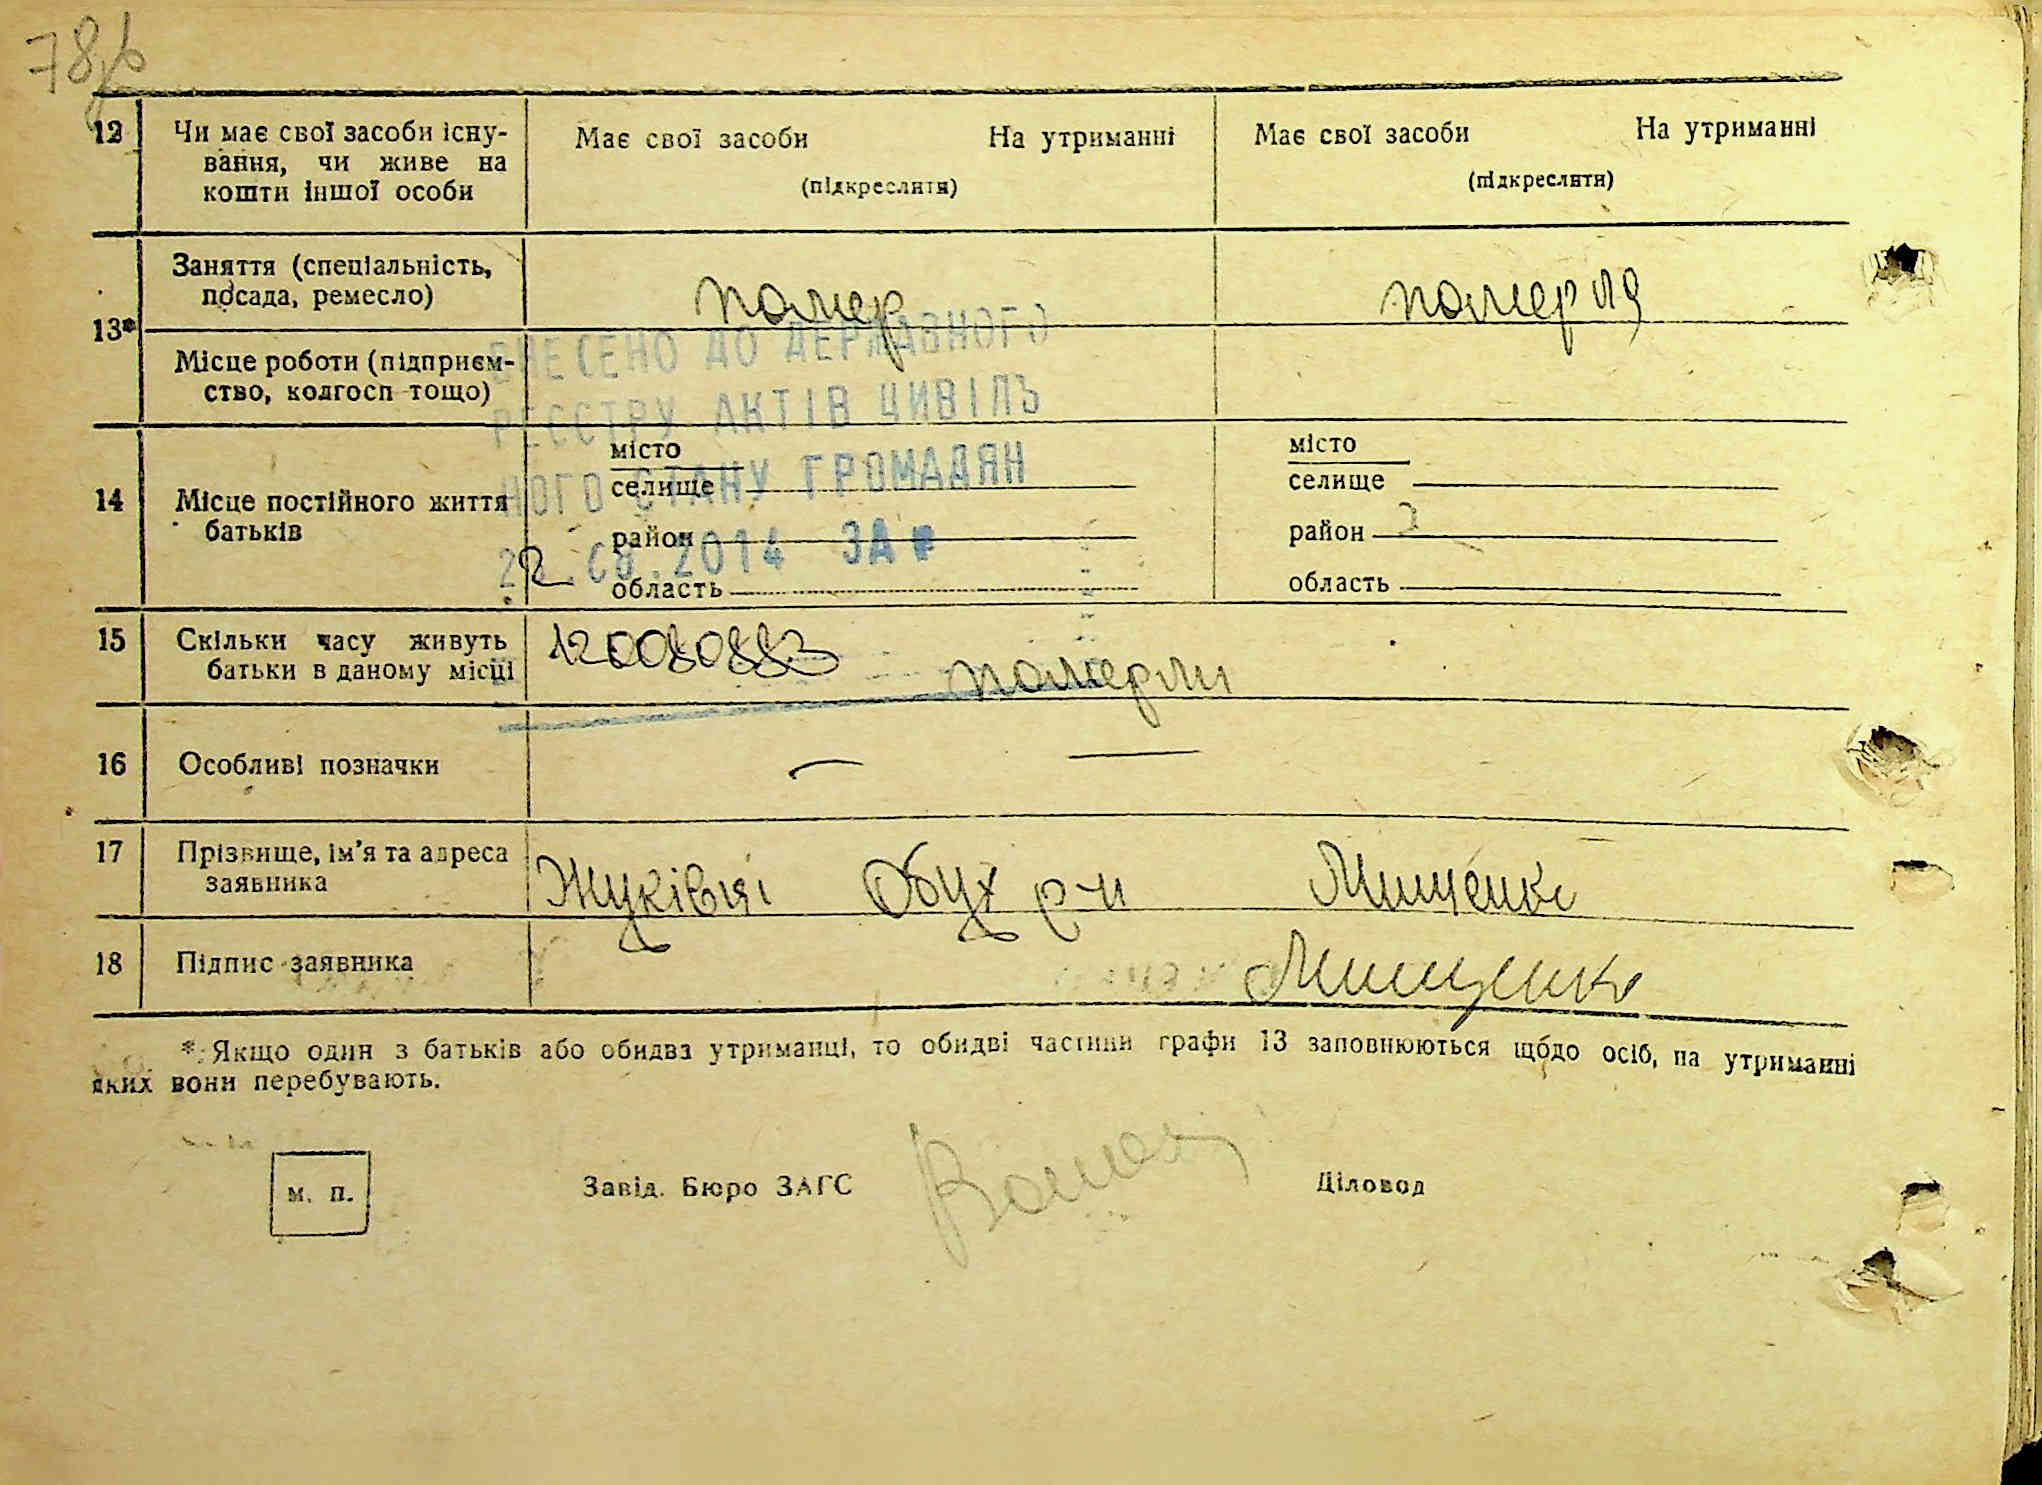 78
12 Чи має свої засоби існу- Має свої засоби На утриманні Має свої засоби На утриманні
вання, чи живе на
кошти іншої особи (підкреслити) (підкреслити)
Заняття (спеціальність,
посада, ремесло) помер померла
13*
Місце роботи (підприєм-
ство, колгосп тощо)
ВНЕСЕНО ДО ДЕРЖАВНОГО
РЕЄСТРУ АКТІВ ЦИВІЛЬ
НОГО СТАНУ ГРОМАДЯН
22.08.2014 ЗА №
місто місто
14 Місце постійного життя селище селище
батьків район район
область область
15 Скільки часу живуть
батьки в даному місці померли
16 Особливі позначки — —
17 Прізвище, ім'я та адреса
заявника Жуківці Обух р-н Мищенко
18 Підпис заявника Мищенко
* Якщо один з батьків або обидва утриманці, то обидві частини графи 13 заповнюються щодо осіб, на утриманні
яких вони перебувають.
м. п. Завід. Бюро ЗАГС Діловод